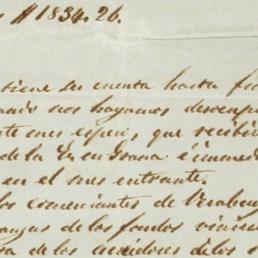 s $1834.26.
tiene su cuenta hasta fi
nos hayamos desemp
te mes espero, que recibi
de la Vr en Grana é inmed
en el mes entrante.
los comerciantes de Verabu
anzas de los fondos vinie
sa de los creedores de los